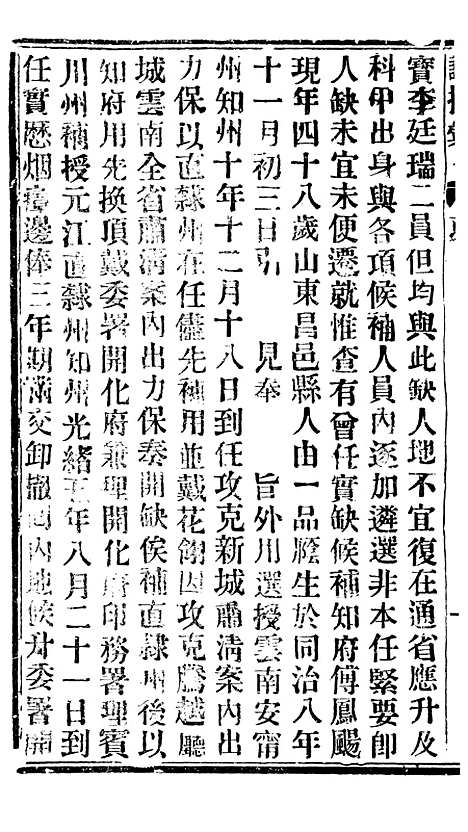 寶李廷瑞二員但均與此缺人地不宜復在通省應升及
科甲出身與各項候補人員內逐加遴選非本任緊要卽
人缺未宜未便遷就惟查有曾任實缺候補知府傅鳳颺
現年四十八歲山東昌邑縣人由一品廕生於同治八年
十一月初三日引 見奉 旨外用選授雲南安甯
州知州十年十二月十八日到任攻克新城肅淸案內出
力保以直隸州在任儘先補用並戴花翎因攻克騰越廳
城雲南全省肅淸案內出力保奏開缺俟補直隸州後以
知府用先換頂戴委署開化府兼理開化府印務署理賓
川州補授元江直隸州知州光緖五年八月二十一日到
任實歷烟瘴邊俸三年期滿交卸撤回內地候升委署開